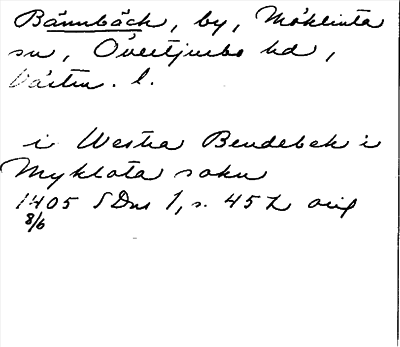 Bännbäck, by, Möklinta
sn, Övertjurbo hd,
Västm. l.
i Westra Bendebek i
Myklota sokn
1405 SDns 1, s. 452 orig
8/6